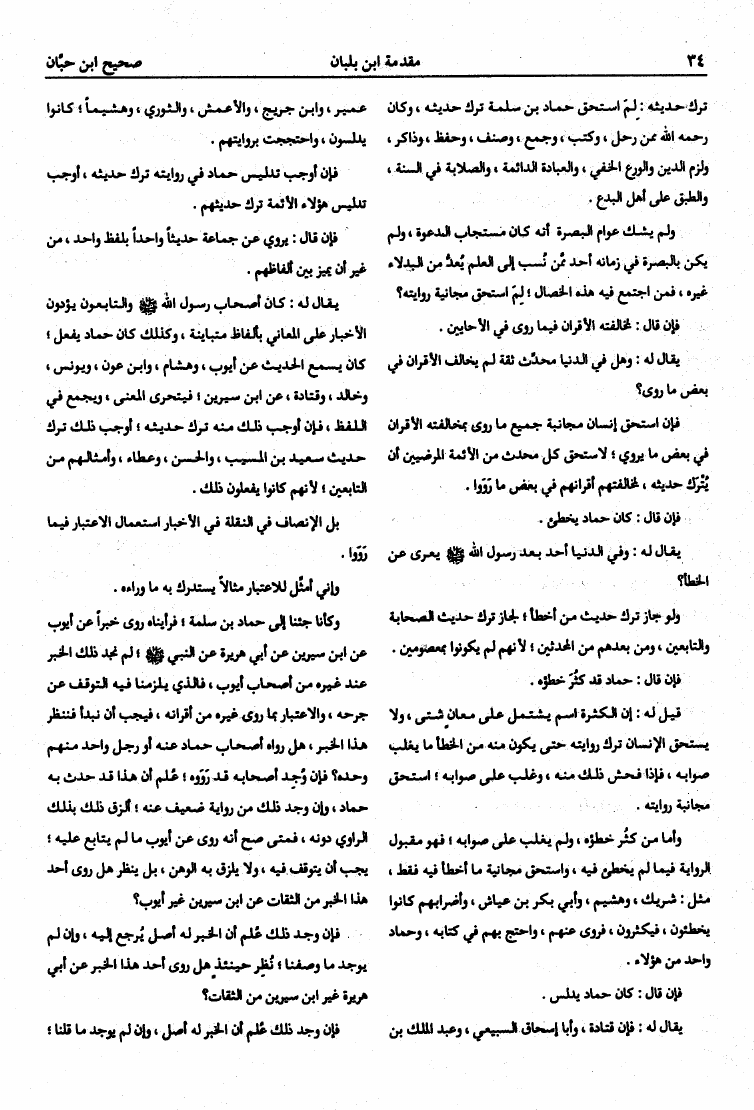 ٣٤
مقدمة ابن بلبان
صحيح ابن حبّان
ترك حديثه : لِمَ استحق حماد بن سلمة ترك حديثه ، وكان
رحمه الله ممن رحل ، وكتب ، وجمع ، وصنف ، وحفظ ، وذاكر ،
ولزم الدين والورع الخفي ، والعبادة الدائمة ، والصلابة في السنة ،
والطبق على أهل البدع .
ولم يشك عوام البصرة أنه كان مستجاب الدعوة ، ولم
يكن بالبصرة في زمانه أحد ممَّن نُسب إلى العلم يُعدُّ من البدلاء
غيره ، فمن اجتمع فيه هذه الخصال ؛ لِمَ استحق مجانبة روايته؟
فإن قال : لمخالفته الأقران فيما روى في الأحايين .
يقال له : وهل في الدنيا محدِّث ثقة لم يخالف الأقران في
بعض ما روى؟
فإن استحق إنسان مجانبة جميع ما روى بمخالفته الأقران
في بعض ما يروي ؛ لاستحق كل محدث من الأئمة المرضيين أن
يُتْرَك حديثه ، لمخالفتهم أقرانهم في بعض ما رَوَوا .
فإن قال : كان حماد يخطئ .
يقال له : وفي الدنيا أحد بعد رسول الله ﷺ يعرى عن
الخطأ؟
ولو جاز ترك حديث من أخطأ ؛ لجاز ترك حديث الصحابة
والتابعين ، ومن بعدهم من المحدثين ؛ لأنهم لم يكونوا بمعصومين .
فإن قال : حماد قد كثُرَ خطؤه .
قيل له : إن الكثرة اسم يشتمل على معانٍ شتى ، ولا
يستحق الإنسان ترك روايته حتى يكون منه من الخطأ ما يغلب
صوابه ، فإذا فحش ذلك منه ، وغلب على صوابه ؛ استحق
مجانبة روايته .
وأما من كثُر خطؤه ، ولم يغلب على صوابه ؛ فهو مقبول
الرواية فيما لم يخطئ فيه ، واستحق مجانبة ما أخطأ فيه فقط ،
مثل : شريك ، وهشيم ، وأبي بكر بن عياش ، وأضرابهم كانوا
يخطئون ، فيكثرون ، فروى عنهم ، واحتج بهم في كتابه ، وحماد
واحد من هؤلاء .
فإن قال : كان حماد يدلس .
يقال له : فإن قتادة ، وأبا إسحاق السبيعي ، وعبد الملك بن
عمير ، وابن جريج ، والأعمش ، والثوري ، وهشيماً ؛ كانوا
يدلسون ، واحتججت بروايتهم .
فإن أوجب تدليس حماد في روايته ترك حديثه ، أوجب
تدليس هؤلاء الأئمة ترك حديثهم .
فإن قال : يروي عن جماعة حديثاً واحداً بلفظ واحد ، من
غير أن يميز بين ألفاظهم .
يقال له : كان أصحاب رسول الله ﷺ والتابعون يؤدون
الأخبار على المعاني بألفاظ متباينة ، وكذلك كان حماد يفعل ؛
كان يسمع الحديث عن أيوب ، وهشام ، وابن عون ، ويونس ،
وخالد ، وقتادة ، عن ابن سيرين ؛ فيتحرى المعنى ، ويجمع في
اللفظ ، فإن أوجب ذلك منه ترك حديثه ؛ أوجب ذلك ترك
حديث سعيد بن المسيب ، والحسن ، وعطاء ، وأمثالهم من
التابعين ؛ لأنهم كانوا يفعلون ذلك .
بل الإنصاف في النقلة في الأخبار استعمال الاعتبار فيما
رَوَوا .
وإني أمثِّل للاعتبار مثالاً يستدرك به ما وراءه .
وكأنا جئنا إلى حماد بن سلمة ؛ فرأيناه روى خبراً عن أيوب
عن ابن سيرين عن أبي هريرة عن النبي ﷺ ؛ لم نجد ذلك الخبر
عند غيره من أصحاب أيوب ، فالذي يلزمنا فيه التوقف عن
جرحه ، والاعتبار بما روى غيره من أقرانه ، فيجب أن نبدأ فننظر
هذا الخبر ، هل رواه أصحاب حماد عنه أو رجل واحد منهم
وحده؟ فإن وُجِد أصحابه قد رَوَوه ؛ عُلم أن هذا قد حدث به
حماد ، وإن وجد ذلك من رواية ضعيف عنه ؛ ألزق ذلك بذلك
الراوي دونه ، فمتى صح أنه روى عن أيوب ما لم يتابع عليه ؛
يجب أن يتوقف فيه ، ولا يلزق به الوهن ، بل ينظر هل روى أحد
هذا الخبر من الثقات عن ابن سيرين غير أيوب؟
فإن وجد ذلك عُلم أن الخبر له أصل يُرجع إليه ، وإن لم
يوجد ما وصفنا ؛ نُظِر حينئذٍ هل روى أحد هذا الخبر عن أبي
هريرة غير ابن سيرين من الثقات؟
فإن وجد ذلك عُلم أن الخبر له أصل ، وإن لم يوجد ما قلنا ؛